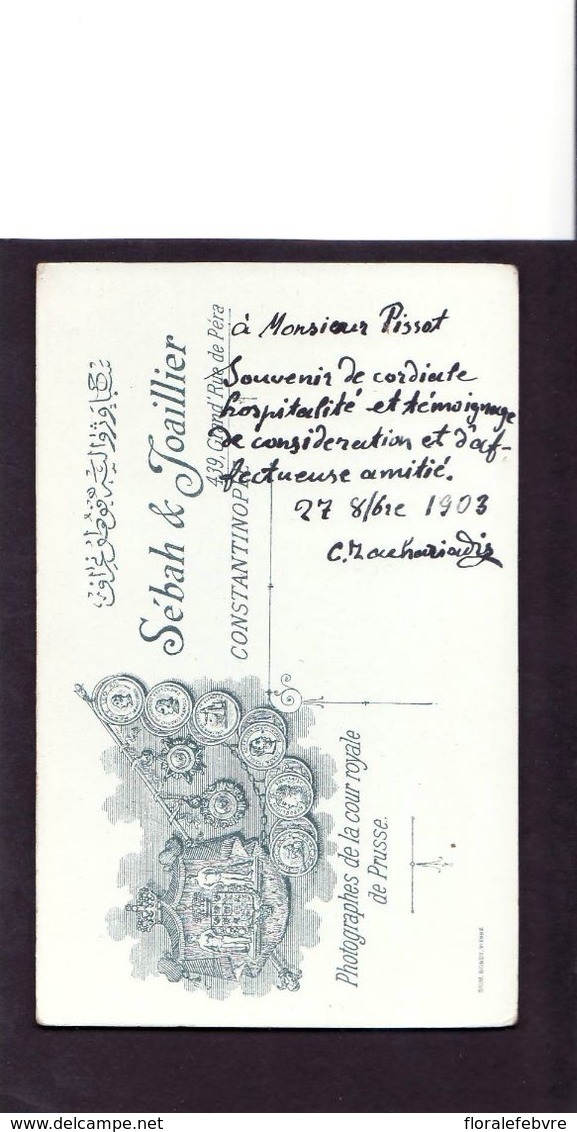 à Monsieur Pissot
Souvenir de cordiale
hospitalité et témoignage
de consideration et d'af-
fectueuse amitié.
27 8/bre 1903
C. Zachariadis
Sébah & Joaillier
439, Grand'Rue de Péra
CONSTANTINOPLE
Photographes de la cour royale
de Prusse.
delcampe.net
floralefebvre